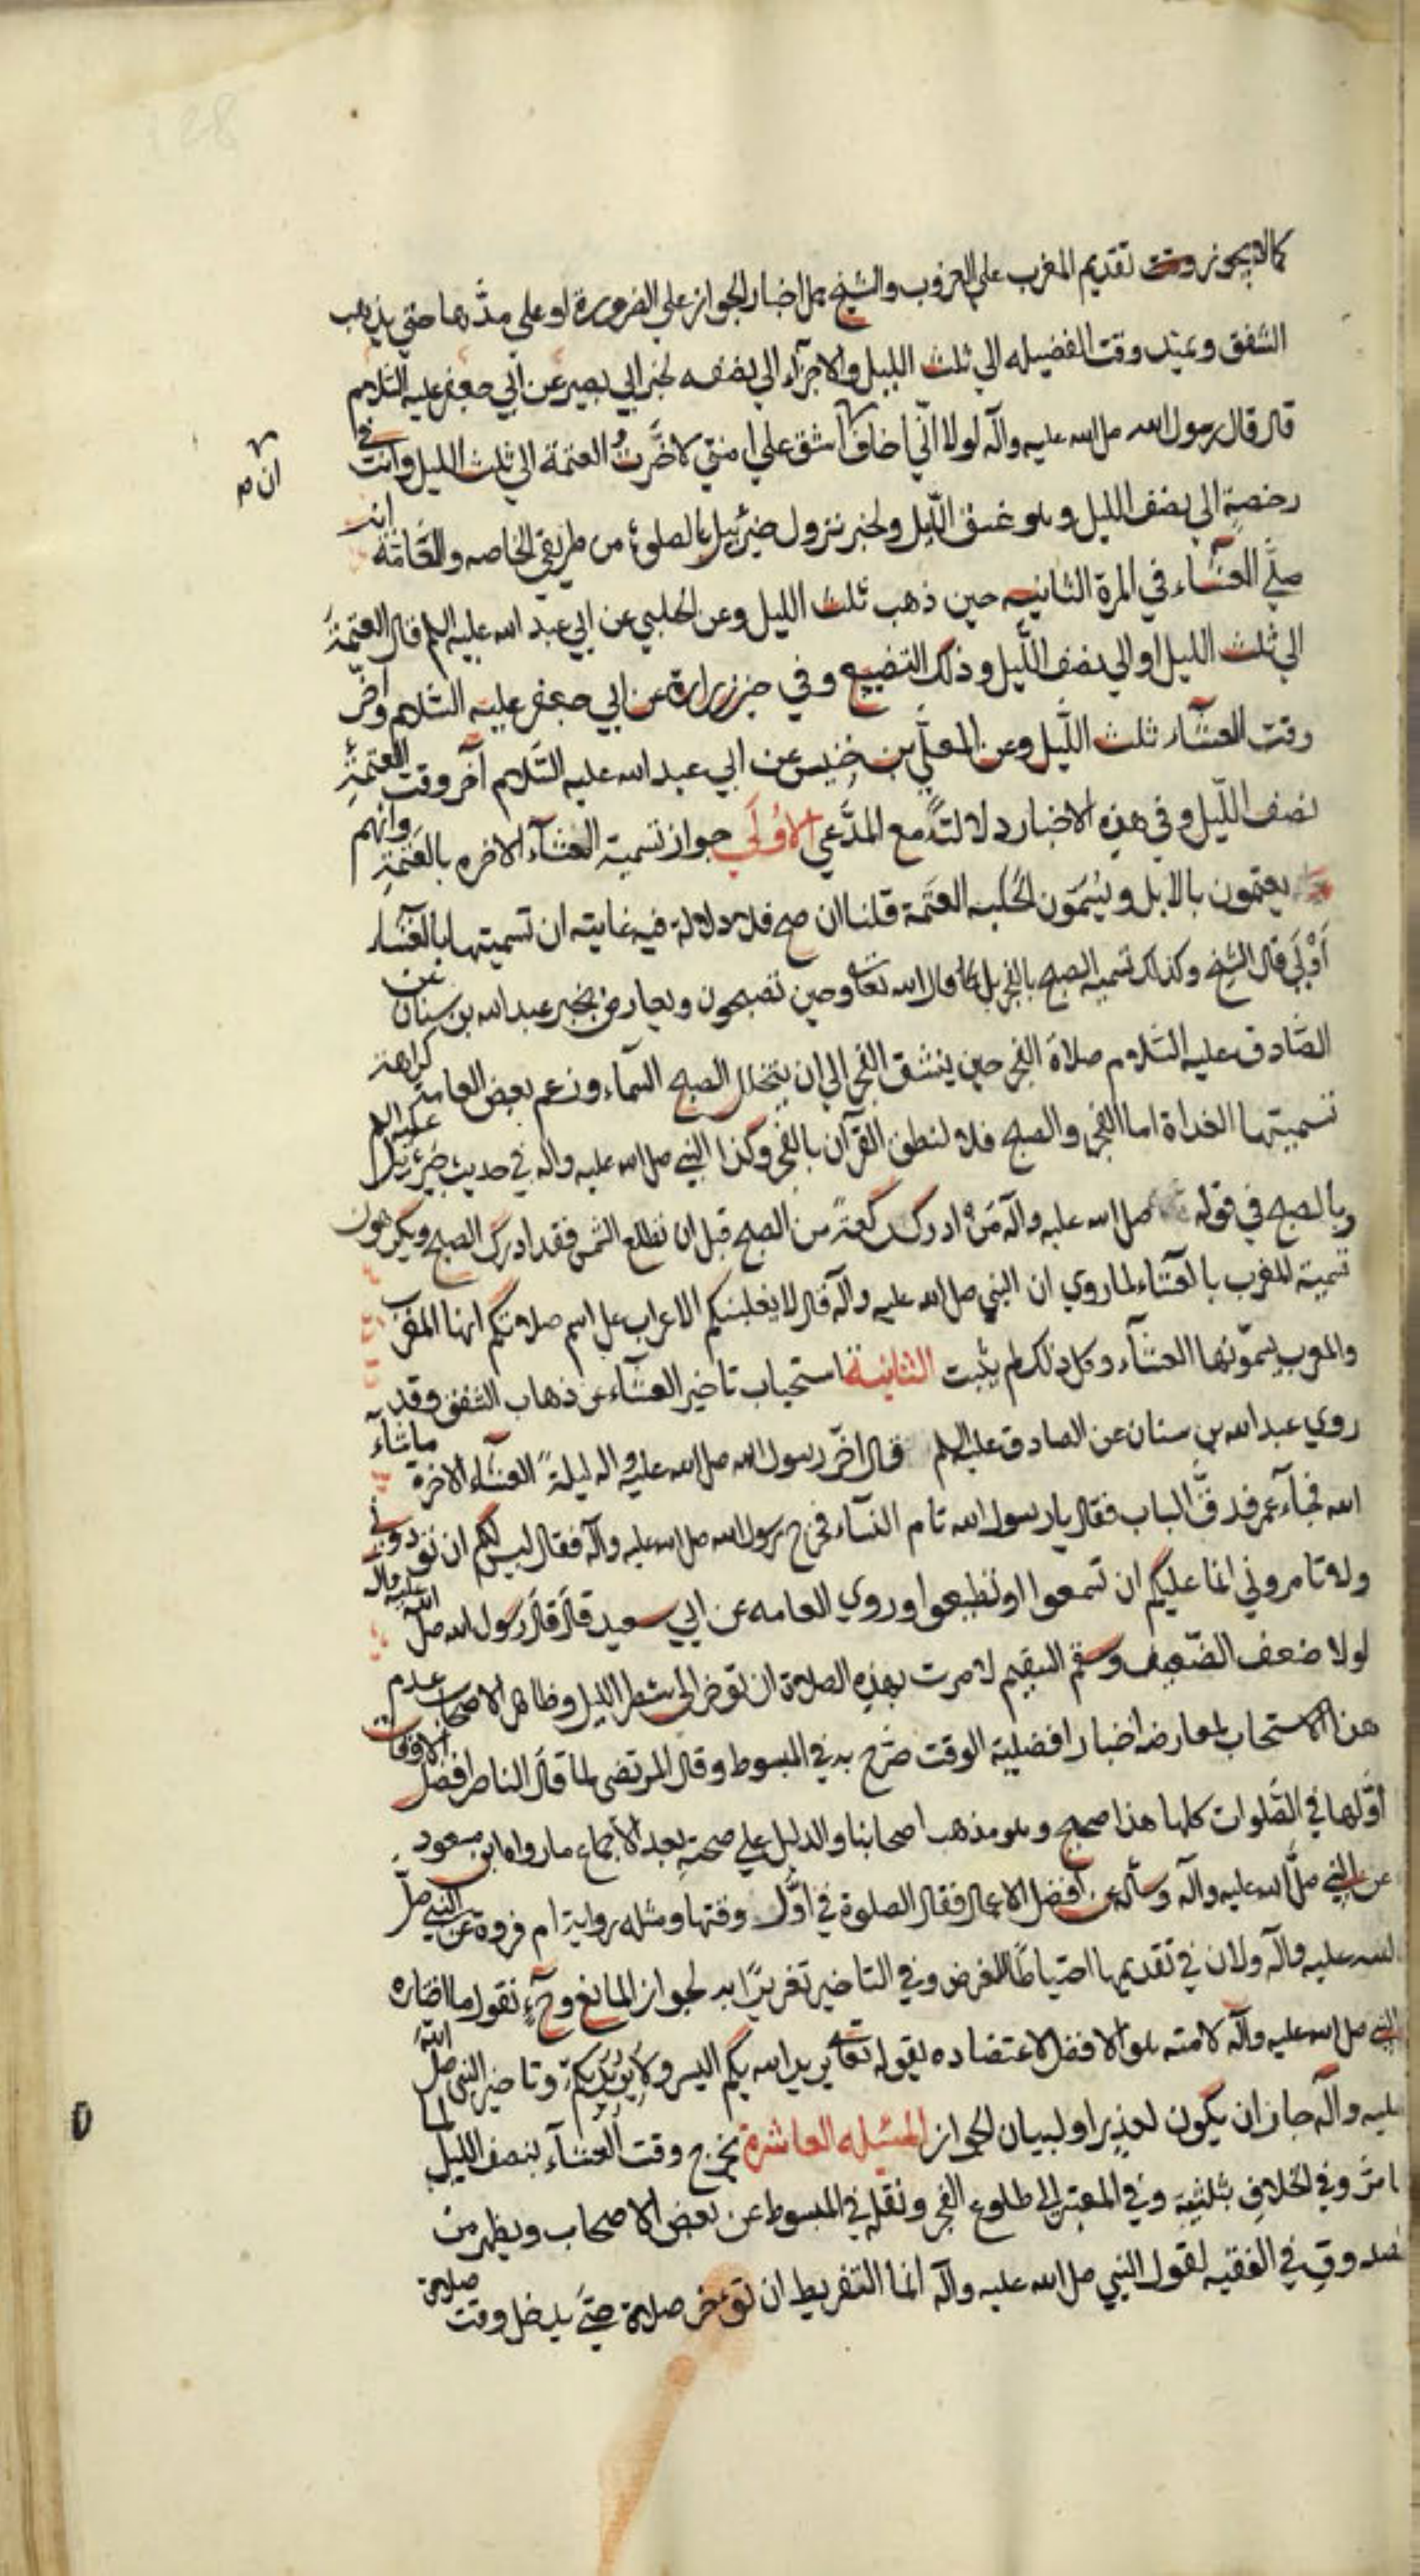 كما لا يجوز وقت تقديم المغرب علي الغروب والشيخ حمل اخبار الجواز علي الضرورة او علي مدّها حتي يذهب
الشفق ويمتد وقت الفضيله الي ثلث الليل والاجزآء الي نصفه لخبر ابي بصير عن ابي جعفر عليه السّلام
قال قال رسول الله صل الله عليه وآله لولا انّي اخاف ان اشق علي امتي لاخّرتُ العتمة الي ثلث الليل وانت في
ان م
رخصةٍ الي نصف الليل وهو غسق اللّيل ولخبر نزول جبرئيل بالصلوة من طريقي الخاصه والعامّة انه
صلّي العشآء في المرة الثانيه حين ذهب ثلث الليل وعن الحلبي عن ابي عبد الله عليه السلم قال العتمة
الي ثلث الليل او الي نصف اللّيل وذلك التضييع وفي خبر زرارة عن ابي جعفر عليه السّلام وآخر
وقت العشآء ثلث اللّيل وعن المعلّي بن خنيس عن ابي عبد الله عليه السّلام آخر وقت العتمةِ
نصف اللّيل وفي هذه الاخبار دلالتٌ مع المدّعي الاُولَي جواز تسمية العشآء الاخره بالعَتَمةِ وانهم
يعتمون بالابل ويُسَمّون الحلبه العَتَمة قلنا ان صح فلا دلالة فيه غايته ان تسميتها بالعشآء
اَوْلَي قال الشيخ وكذلك تسمية الصبح بالفجر بل كما قال الله تعالي وحين تصبحون ويعارض بخبر عبد الله بن سنان عن
الصّادق عليه السّلام صلاة الفجر حين ينشق الفجر الي ان يتخلل الصبح السمآء وزعم بعض العامة كراهة
تسميتها الغداة اما الفجر والصبح فلا لنطق القرآن بالفجر وكذا النبي صل الله عليه واله في حديث جبرئيل عليه السلم
وبالصبح في قوله صل الله عليه وآله مَن ادرك ركعةً من الصبح قبل ان تطلع الشمس فقد ادرك الصبح ويكرهون
تسمية المغرب بالعشاء لما روي ان النبي صل الله عليه وآله قال لا يغلبنكم الاعراب علي اسم صلاتكم انها المغرب
والعرب يسمّونها العشآء وكل ذلك لم يثبت الثانية استحباب تاخير العشآء عن ذهاب الشفق وقد
روي عبد الله بن سنان عن الصادق عليه السلم قال اخّر رسول الله صل الله عليه واله ليلةً العشآء الاخرة ما شآء
الله فجآء عمر فدقّ الباب فقال يا رسول الله نام النسآء فخرج رسول الله صل الله عليه وآله فقال ليس لكم ان توذوني
ولا تامروني انما عليكم ان تسمعوا او تطيعوا وروي العامه عن ابي سعيد قال قال رسول الله صل الله عليه واله
لولا ضعف الضّعيف وسقم السقيم لامرت بهذه الصلاة ان توخر الي شطر الليل وظاهر الاصحاب عدم
هذا الاستحباب لمعارضة اخبار افضلية الوقت صرّح به في المبسوط وقال المرتضي لما قال الناصر افضل الاوقات
اَوّلها في الصّلوات كلها هذا صحيح وهو مذهب اصحابنا والدليل علي صحته بعد الاجماع ما رواه ابن مسعود
عن النبي صلّ الله عليه وآله وسأله عن افضل الاعمال فقال الصلوة في اوّل وقتها ومثله رواية ام فروة عن النبي صلّ
الله عليه وآله ولان في تقديمها احتياطًا للفرض وفي التاخير تغريرًا به لجواز المانع وحٍ نقول ما اختاره
النبي صل الله عليه وآله لامته هو الافضل لاعتضاده بقوله تعالي يريد الله بكم اليسر ولا يريد بكم وتاخير النبي صل الله
عليه وآله جاز ان يكون لعذرٍ او لبيان الجواز المسئله العاشرة يخرج وقت العشآء بنصف الليل لما
مرّ وفي الخلاف بثلثيه وفي المعتبر الي طلوع الفجر ونقله في المبسوط عن بعض الاصحاب ويظهر من
الصدوق في الفقيه لقول النبي صل الله عليه وآله انما التفريط ان توخر صلاة حتي يدخل وقت صلاة